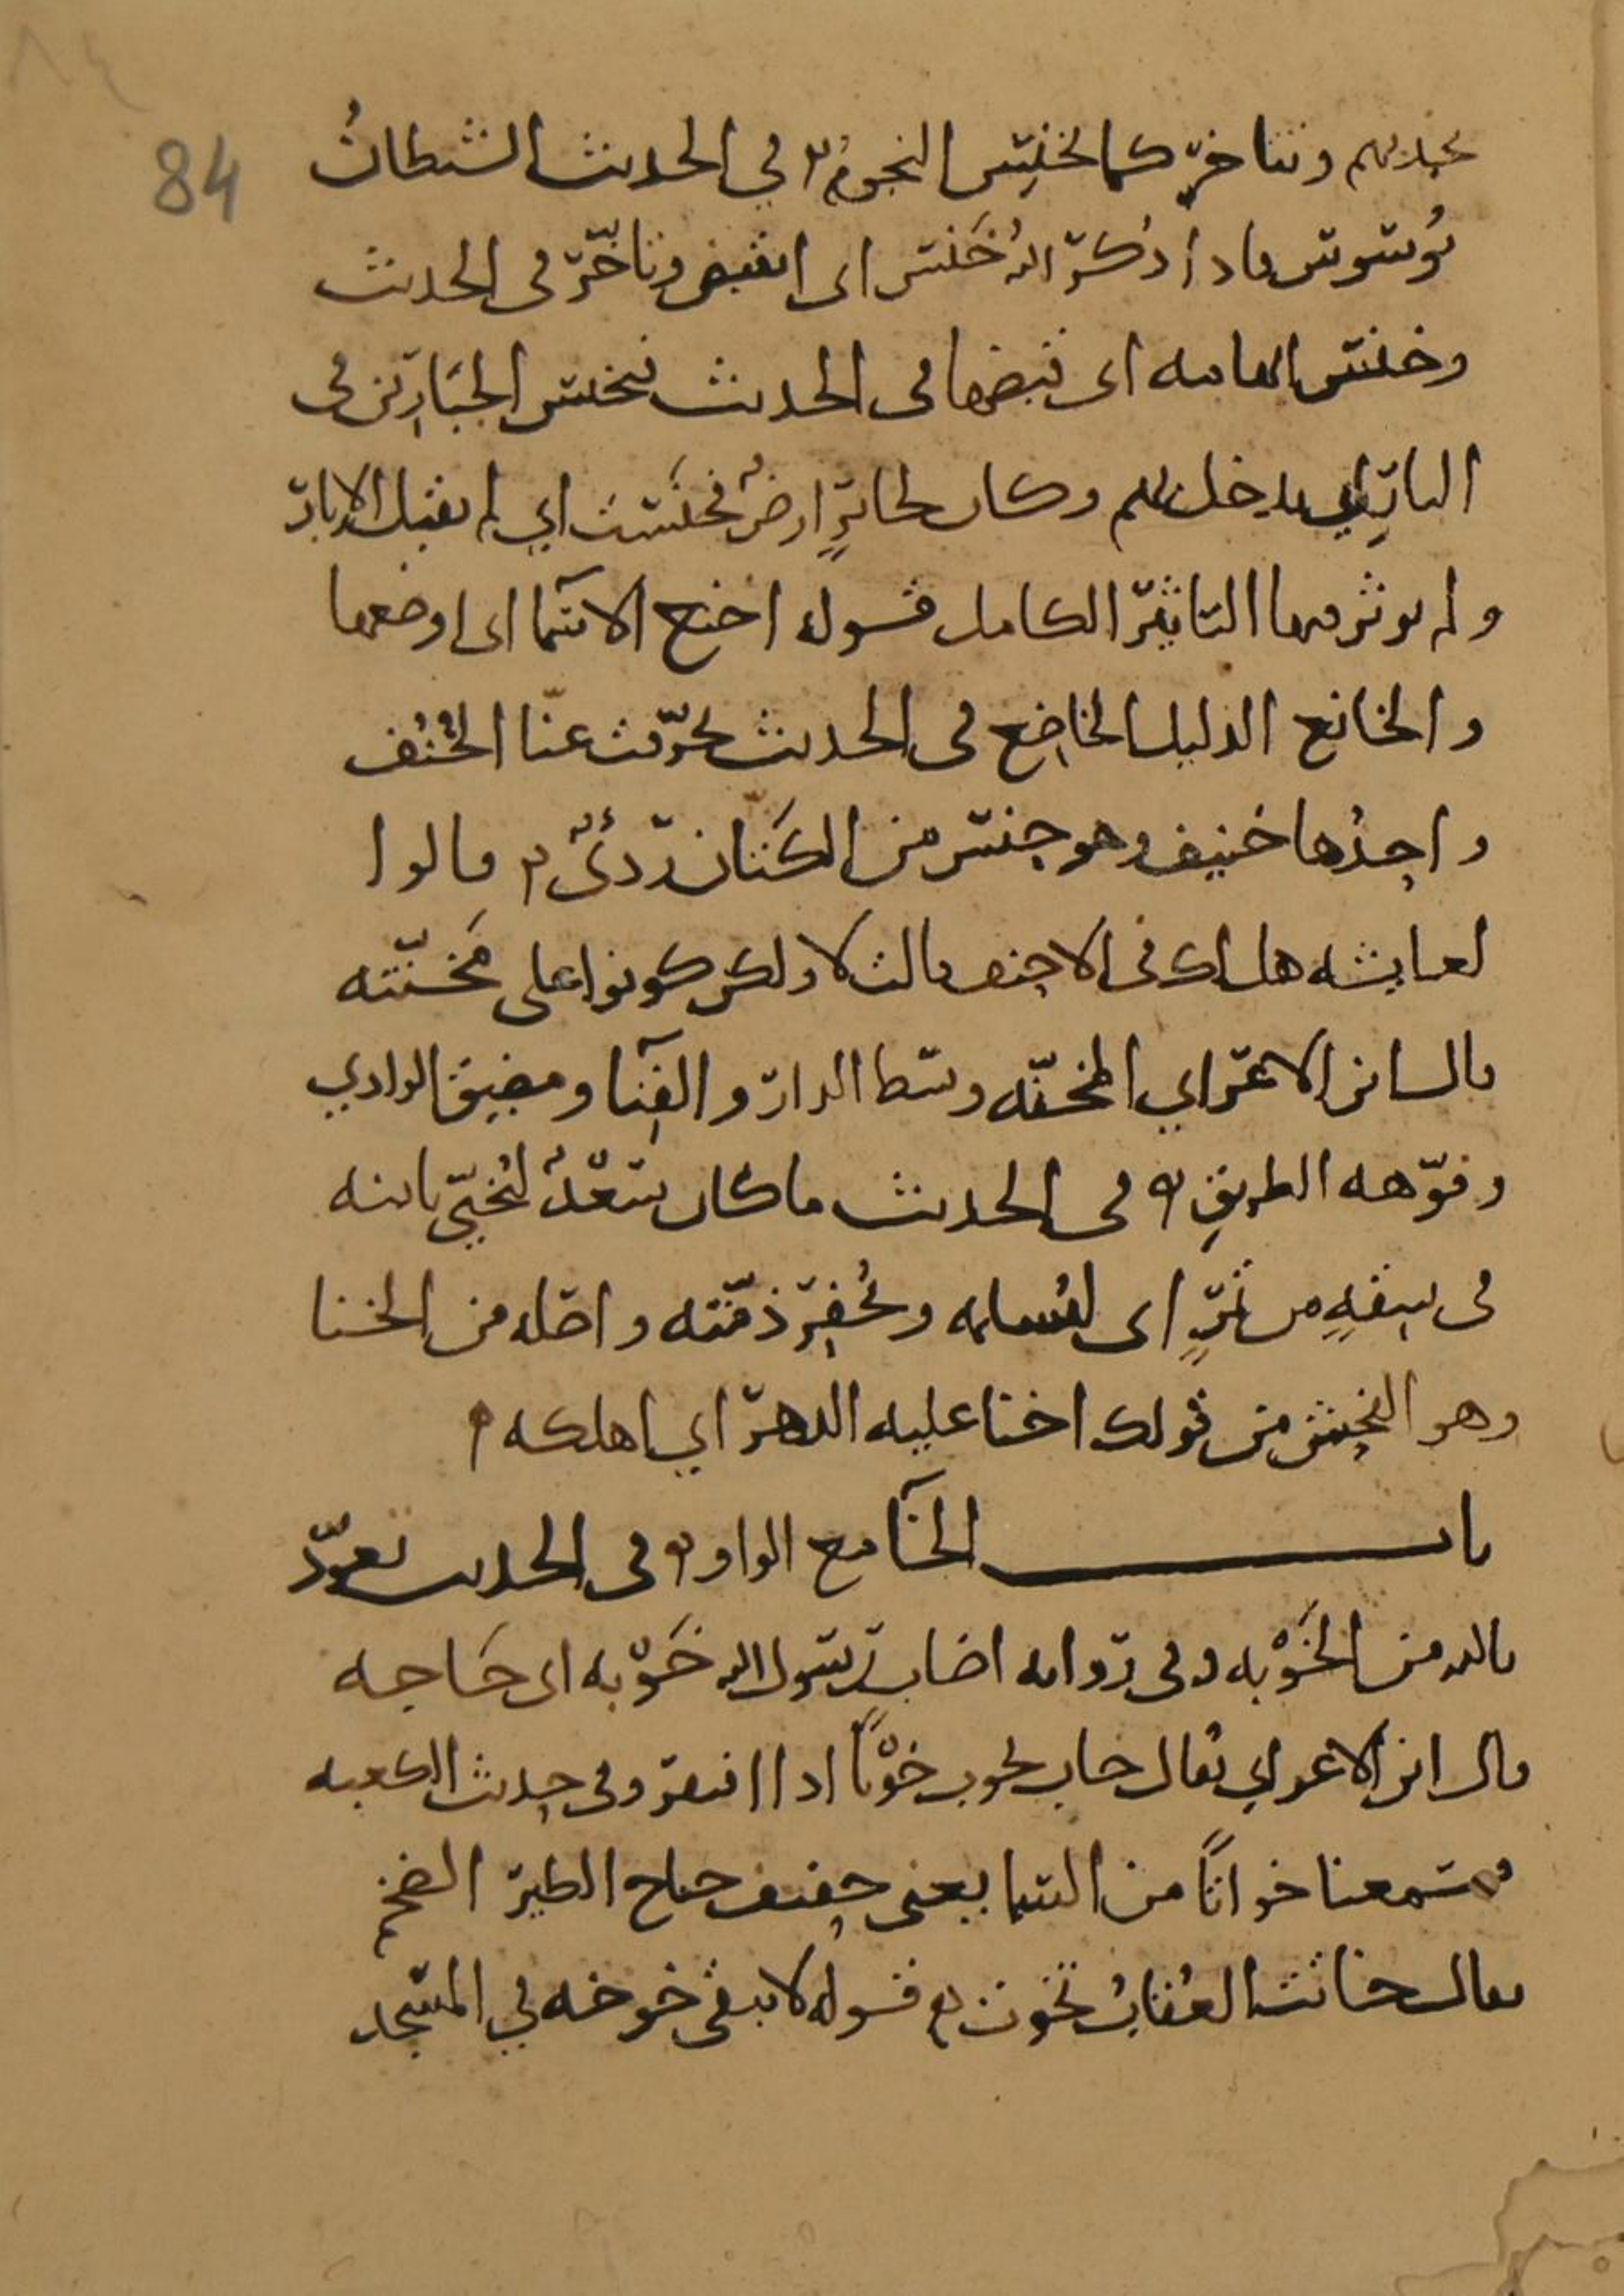 84
تجذبهم وتتأخر كما تخنس النجوم في الحديث الشيطان
يُوسوس فاذا ذكر الله خَنس اى انقبض وتاخّر في الحديث
وخنس ابهامه اى قبضها في الحديث فتخنس الجبّارين في
النار اي يدخل بهم وكان لجابرٍ ارضٌ فخَنَسَت اي لم تقبل الإبار
ولم يوثر فيها التاثير الكامل قوله اخنع الاسمآ اى اوضعها
والخانع الذليل الخاضع في الحديث تخرّقت عنّا الخُنُف
واحدُها خنيف وهو جنس من الكَتّان ردئٌ قالوا
لعايشه هل لك في الاحنف قالت لا ولكن كونوا على مَخنّته
قال ابن الاعرابي المخنّه وسط الدار والفِنآ ومضيق الوادي
وفوّهه الطريق في الحديث ما كان سَعْدٌ ليُخنِيَ بابنه
في شِقّةٍ من تمرٍ اى ليُسلمه ويُخفِر ذمّته واصله من الخنا
وهو الفحش من قولك اخنا عليه الدهر اي اهلكه
باب الخآ مع الواو في الحديث نعوذ
بالله من الخَوْبه وفي روايه اصاب رسول الله خَوْبه اى حَاجه
قال ابن الاعرابي يُقال خاب يخوب خوْبًا اذا افتقر وفي حديث الكعبه
فسمعنا خواتًا من السما يعني حفيف جناح الطير الضخم
يقال خاتت العُقابُ تخوت قوله لا يبقى خوخه في المسجد